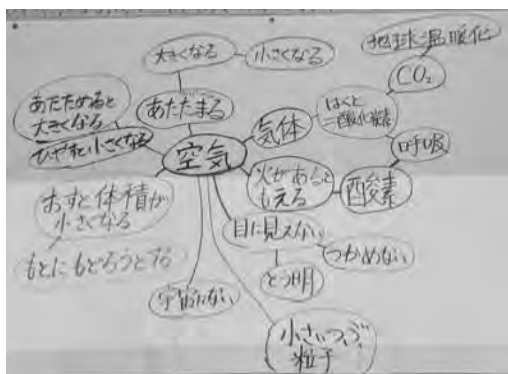 大きくなる
小さくなる
地球温暖化
CO₂
あたためると
大きくなる
ひやすと小さくなる
あただまる
気体
はくと
二酸化炭素
呼吸
空気
火があると
もえる
酸素
おすと体積が
小さくなる
もとにもどろうとする
目に見えない
つかめない
とう明
宇宙にない
小さいつぶ
粒子